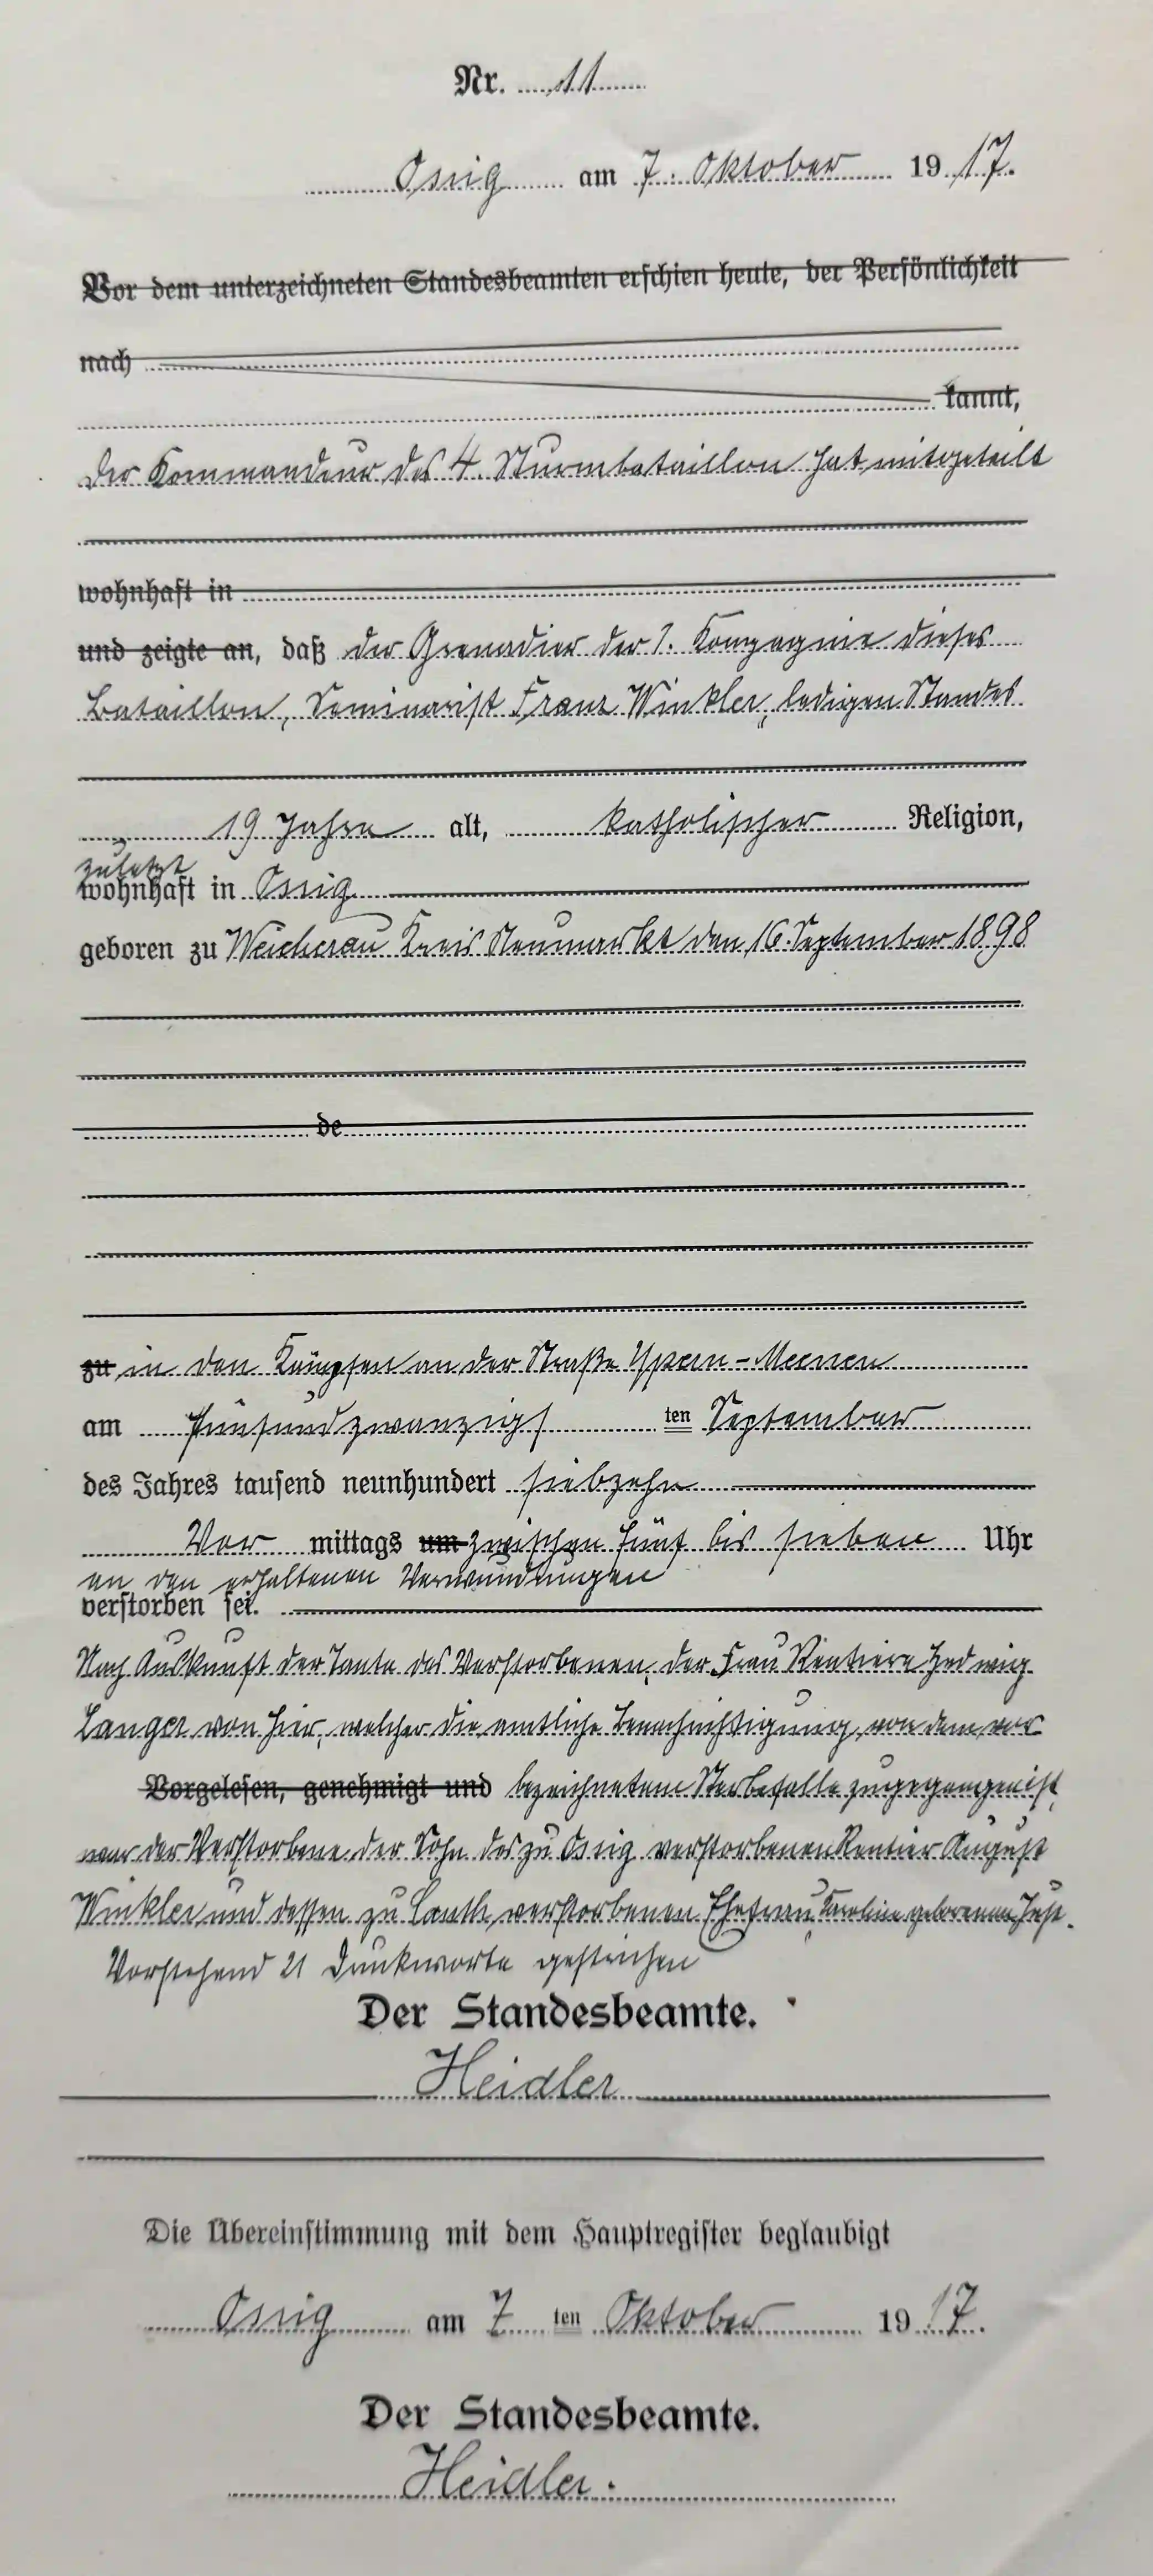 Nr. 11
Ossig am 7. Oktober 1917.
Vor dem unterzeichneten Standesbeamten erschien heute, der Persönlichkeit
nach
kannt,
der Kommandeur des 4. Sturmbataillon hat mitgeteilt
wohnhaft in
und zeigte an, daß der Grenadier der 1. Kompagnie dieses
Bataillon, Seminarist Franz Winkler, ledigen Standes
19 Jahre alt, katholischer Religion,
zuletzt
wohnhaft in Ossig
geboren zu Weicherau Kreis Neumarkt den 16. September 1898
de
zu in den Kämpfen an der Straße Ypern-Meenen
am fünfundzwanzigs ten September
des Jahres tausend neunhundert siebzehn
Vor mittags um zwischen fünf bis sieben Uhr
an den erhaltenen Verwundungen
verstorben sei.
Nach Auskunft der Tante des Verstorbenen, der Frau Rentiere Hedwig
Langer von hier, welcher die amtliche Benachrichtigung von dem vor
Vorgelesen, genehmigt und bezeichnetem Sterbefalle zugegangen ist,
war der Verstorbene der Sohn des zu Ossig verstorbenen Rentier August
Winkler und dessen zu Canth verstorbenen Ehefrau Karoline geborenen Just.
Vorstehend 21 Druckworte gestrichen
Der Standesbeamte.
Heidler
Die Übereinstimmung mit dem Hauptregister beglaubigt
Ossig am 7 ten Oktober 1917.
Der Standesbeamte.
Heidler.